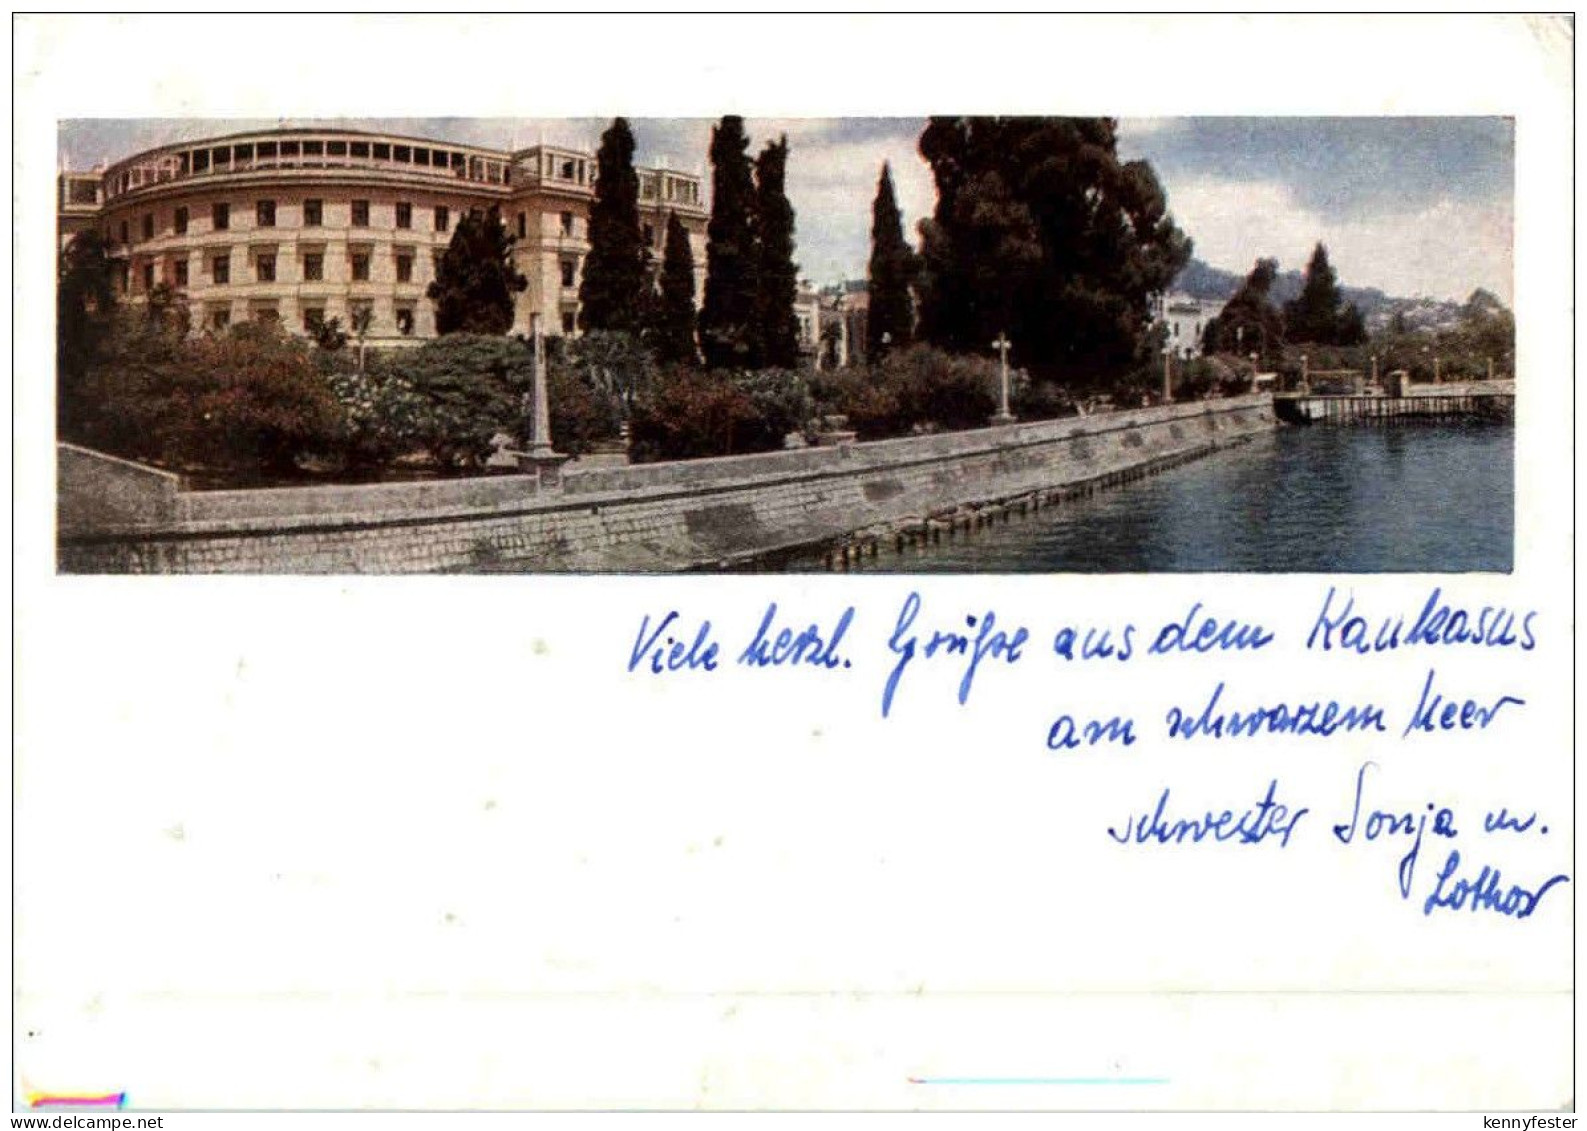 Viele herzl. Grüße aus dem Kaukasus
am schwarzem Meer
Schwester Sonja u.
Lothar
delcampe.net
kennyfester